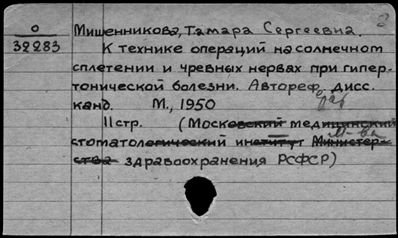 О
32283
Мишенникова, Тамара Сергеевна.
К технике операций на солнечном
сплетении и чревных нервах при гипер-
тонической болезни. Автореф. дисс.
канд. М., 1950
11стр. (Московский медицинский
стоматологический институт Министер-
ства здравоохранения РСФСР)